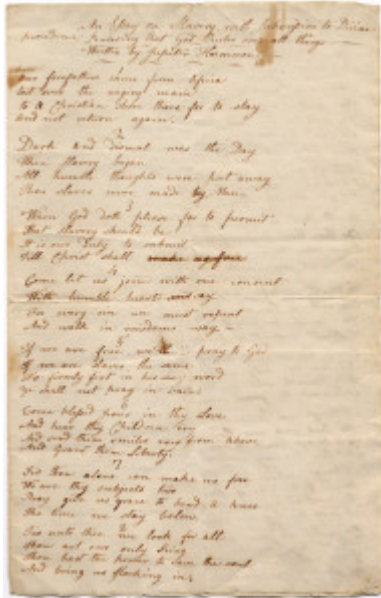 An Essay on Slavery with Submission to Divine
providence, knowing that God Rules over all things
Written by Jupiter Hammon
Our forefathers came from Africa
tost over the raging main
to a Christian shore there for to stay
and not return again.
2
Dark and dismal was the Day
When slavery began
All humble thoughts were put away
Then slaves were made by Man.
3
When God doth please for to permit
That slavery should be
It is our duty to submit
Till Christ shall make us free
4
Come let us join with one consent
With humble hearts and say
For every sin we must repent
And walk in wisdoms way
5
If we are free we'll pray to God
If we are slaves the same
It's firmly fixt in his word
Ye shall not pray in vain.
Come blessed Jesus in thy Love
And hear thy Children cry
And send them smiles now from above
And grant them Liberty.
7
Tis thou alone can make us free
We are thy subjects two
Pray give us grace to bend a knee
The time we stay below
8
Tis unto thee we look for all
Thou art our only King
Thou hast the power to save the soul
And bring us flocking in.